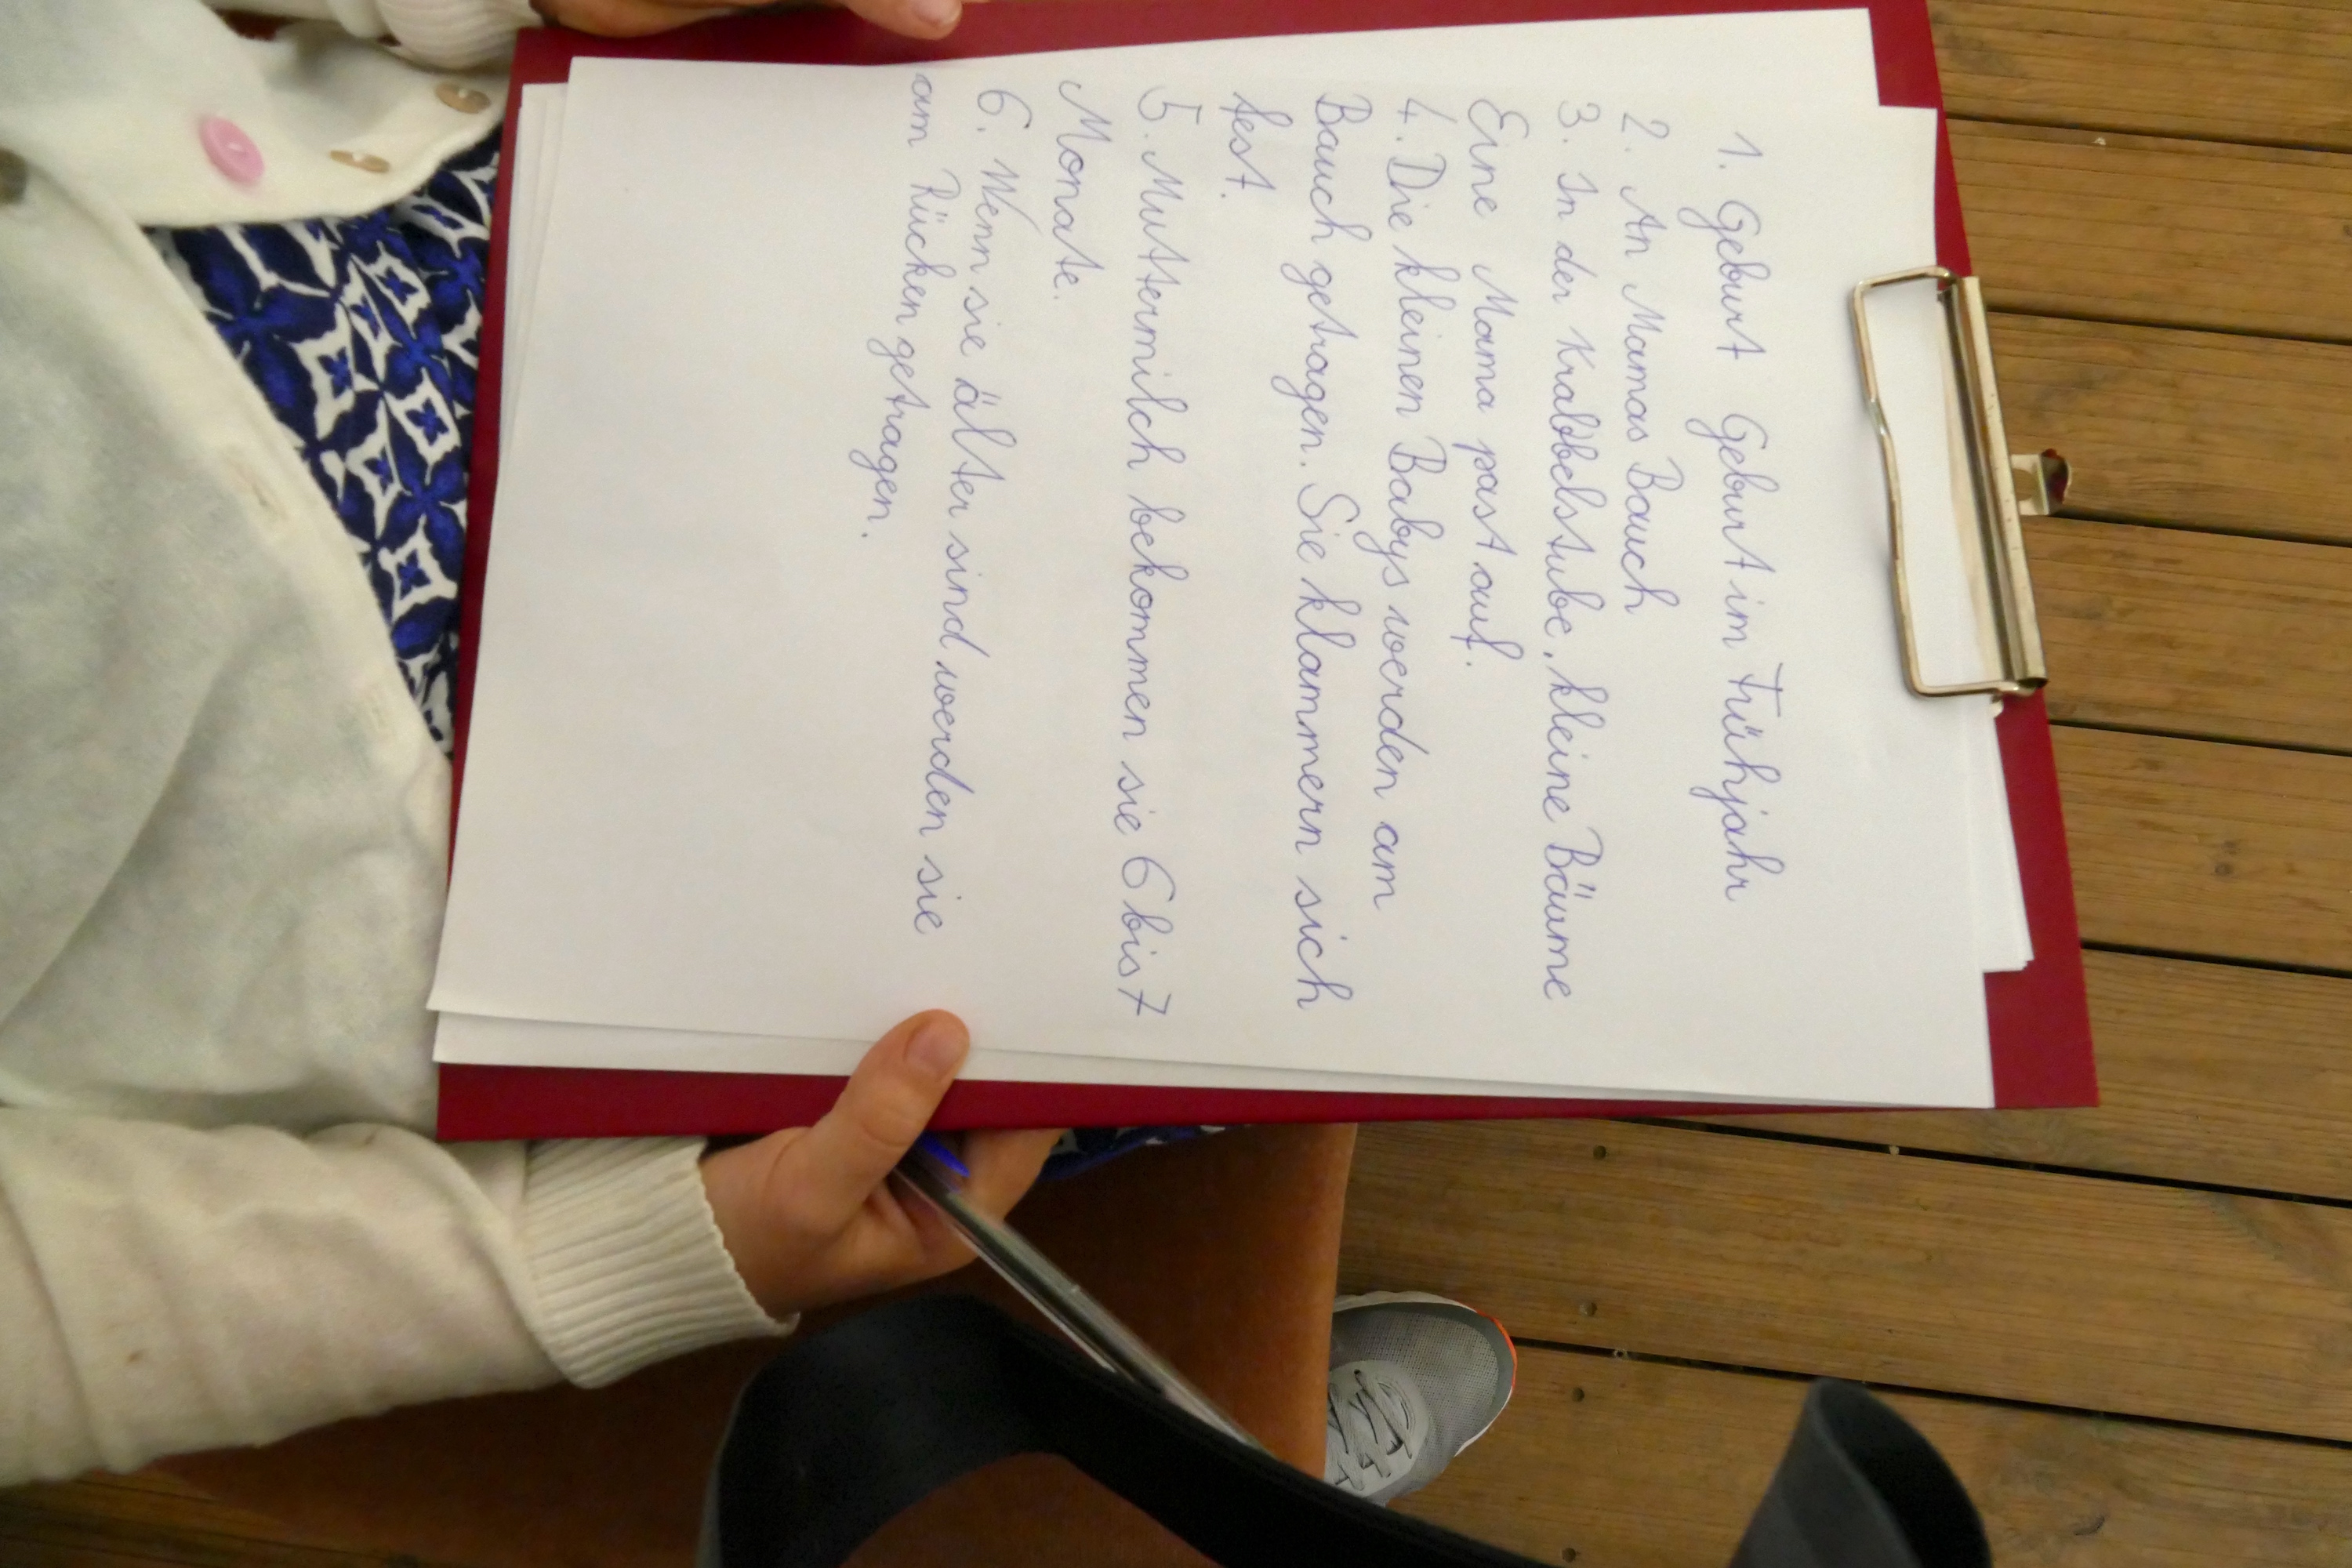 1. Geburt Geburt im Frühjahr
2. An Mamas Bauch
3. In der Krabbelstube, kleine Bäume
Eine Mama past auf.
4. Die kleinen Babys werden am
Bauch getragen. Sie klammern sich
fest.
5. Muttermilch bekommen sie 6 bis 7
Monate.
6. Wenn sie älter sind werden sie
am Rücken getragen.